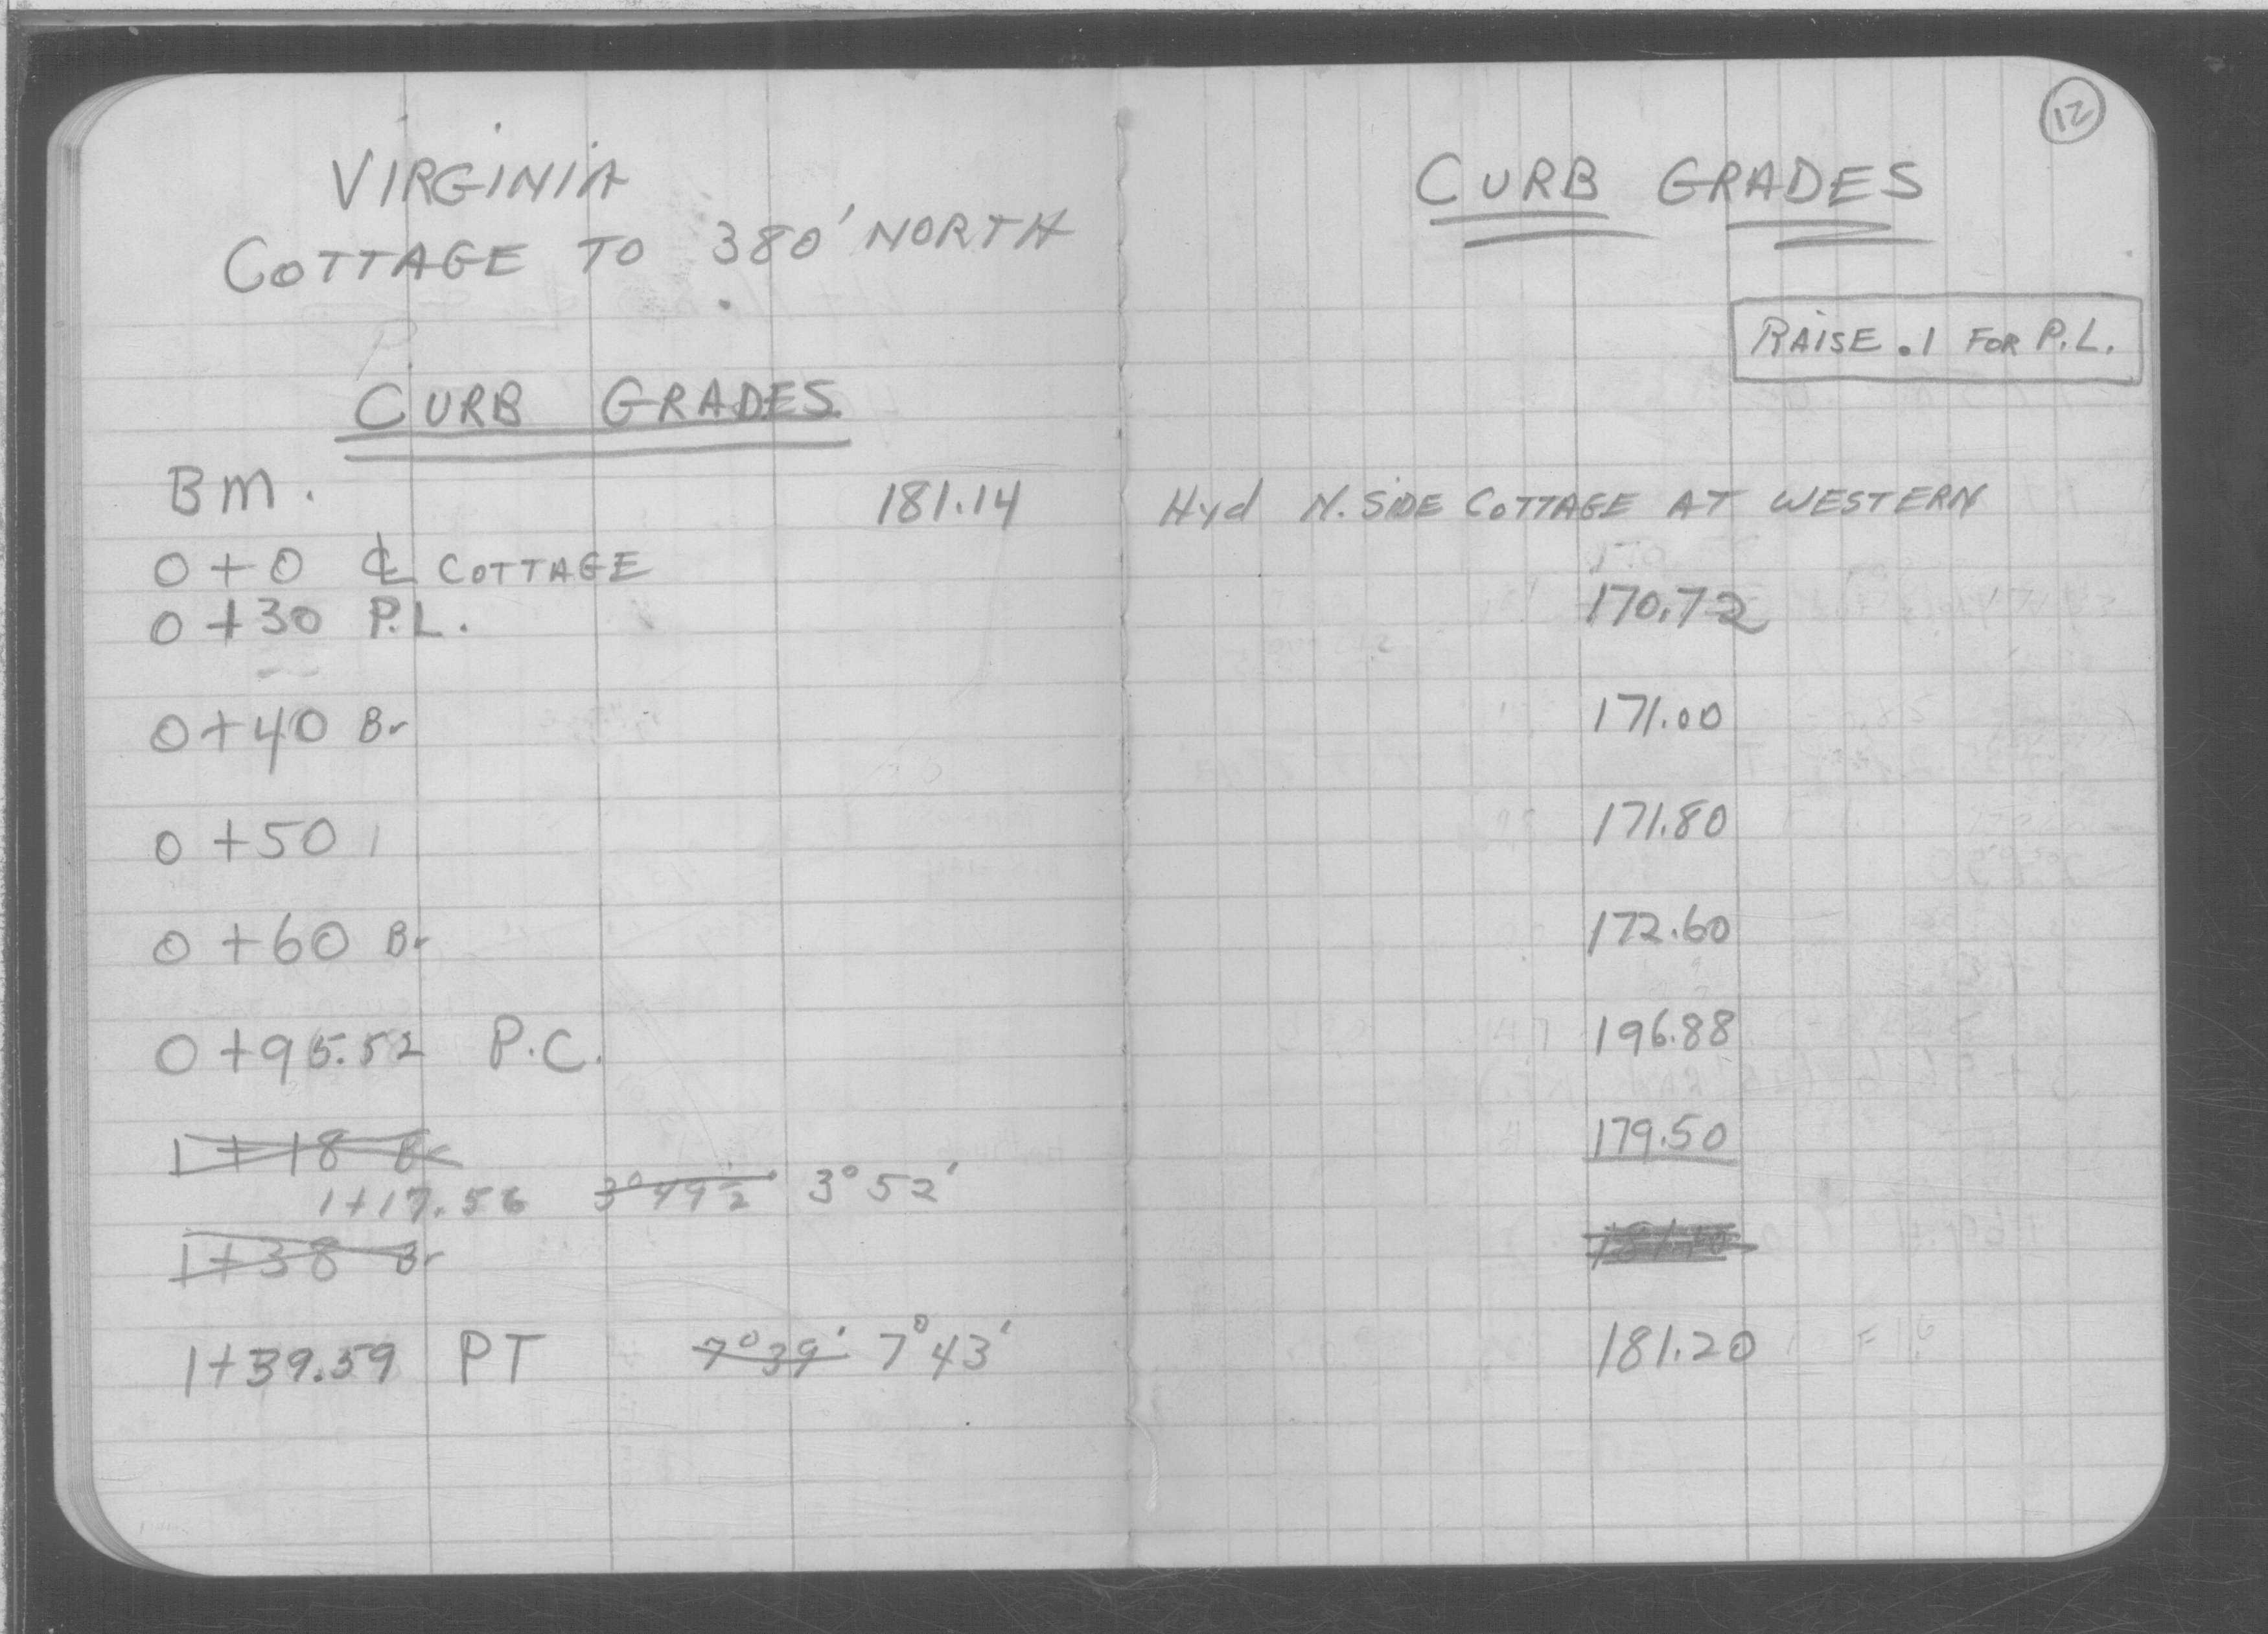 VIRGINIA
COTTAGE TO 380' NORTH
CURB GRADES
Bm. 181.14
0+0 ℄ COTTAGE
0+30 P.L.
0+40 Br
0+50
0+60 Br
0+95.52 P.C.
1+18 Br
1+17.56 3°49½ 3°52'
1+38 Br
1+39.59 PT 7°39' 7°43'
12
CURB GRADES
RAISE .1 FOR P.L.
Hyd N. SIDE COTTAGE AT WESTERN
170.72
171.00
171.80
172.60
196.88
179.50
181.20